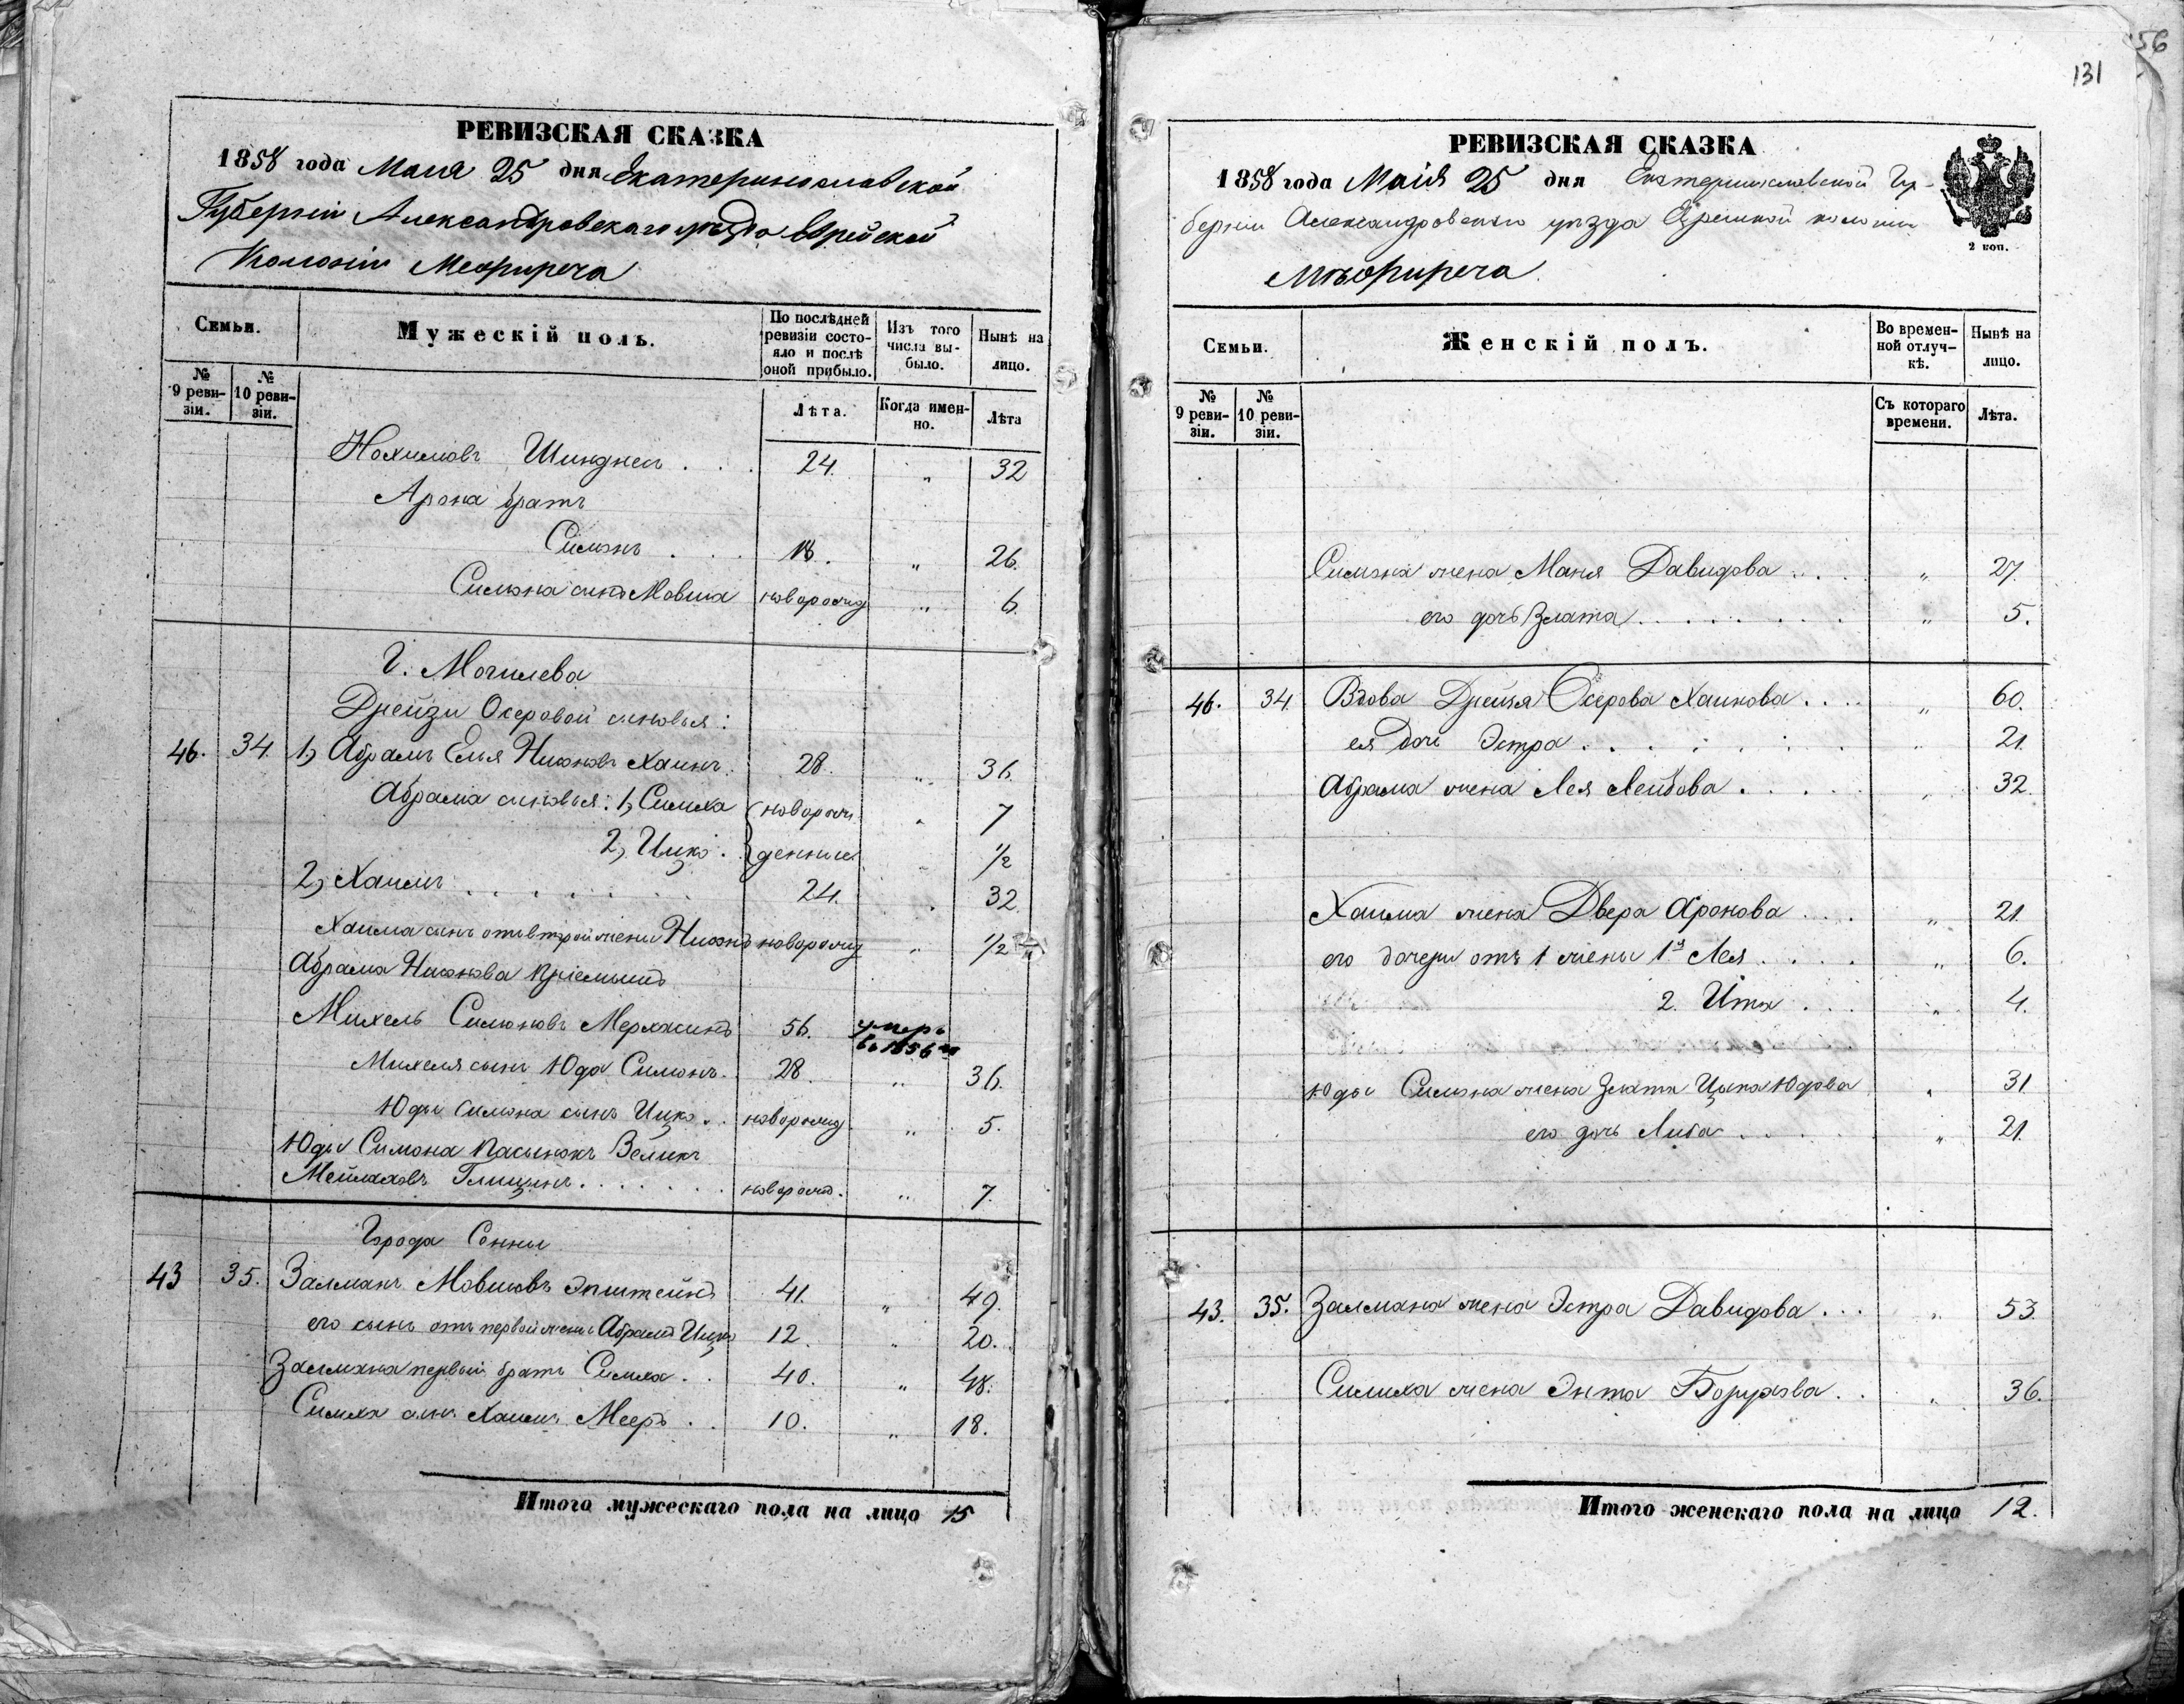 РЕВИЗСКАЯ СКАЗКА
1858 года Маия 25 дня Екатеринославской
Губерніи Александровскаго уѣзда Еврейской
Колоніи Межиречa
Семьи.
Мужескій полъ.
По послѣдней ревизіи состояло и послѣ оной прибыло.
Изъ того числа выбыло.
Нынѣ на лицо.
№ 9 ревизіи.
№ 10 ревизіи.
Лѣта.
Когда именно.
Лѣта
Нохимовъ . . . 24. „ 32
Арона братъ
Симонъ . . . 18. „ 26.
Симона сынъ Мовша новорожд „ 6.
Г. Могилева
Дрейзи Осеровой сыновья:
46. 34. 1, Абрамъ Еля Нисоновъ Хаинъ. 28. „ 36.
Абрама сыновья: 1, Симха новорож „ 7
2, Ицко. денные „ 1/2
2, Хаимъ . . . . . . 24. „ 32.
Хаима сынъ отъ второй жены Нисонъ новорожд „ 1/2
Абрама Нисонова пріемышъ
Михель Симоновъ 56. умеръ въ 1856 м
Михеля сынъ Юда Симонъ. 28. „ 36.
Юды Симона сынъ Ицко. . новорожд „ 5.
Юды Симона пасынокъ Велихъ
Мейлаховъ . . . . . . новорожд. „ 7.
Города Сенны
43 35. Залманъ Мовшовъ Эпштейнъ 41. „ 49.
его сынъ отъ первой жены Абрамъ Ицко 12. „ 20.
Залмана первый братъ Симха. . 40. „ 48.
Симхи сынъ Хаимъ Мееръ . . 10. „ 18.
Итого мужескаго пола на лицо 15
56
131
РЕВИЗСКАЯ СКАЗКА
1858 года Маія 25 дня Екатеринославской Гу-
берніи Александровскаго уѣзда Еврейской колоніи
Межиреча
2 коп.
Семьи.
Женскій полъ.
Во временной отлучкѣ.
Нынѣ на лицо.
№ 9 ревизіи.
№ 10 ревизіи.
Съ котораго времени.
Лѣта.
Симона жена Маня Давидова . . . . „ 27.
его дочь Злата . . . . . . . „ 5.
46. 34. Вдова Дрейзя Осерова Хаинова . . . . „ 60.
ея дочь Эстра . . . . . . . „ 21.
Абрама жена Лея Лейбова . . . . . „ 32.
Хаима жена Двера Аронова . . . . „ 21.
его дочери отъ 1 жены 1я Лея . . . . „ 6.
2. Итя . . . „ 4.
Юды Симона жена Злата Ицка Юдова „ 31
его дочь Либа . . . . . „ 21.
43. 35. Залмана жена Эстра Давидова . . . „ 53.
Симха жена Энта Борухова . . „ 36.
Итого женскаго пола на лицо 12.